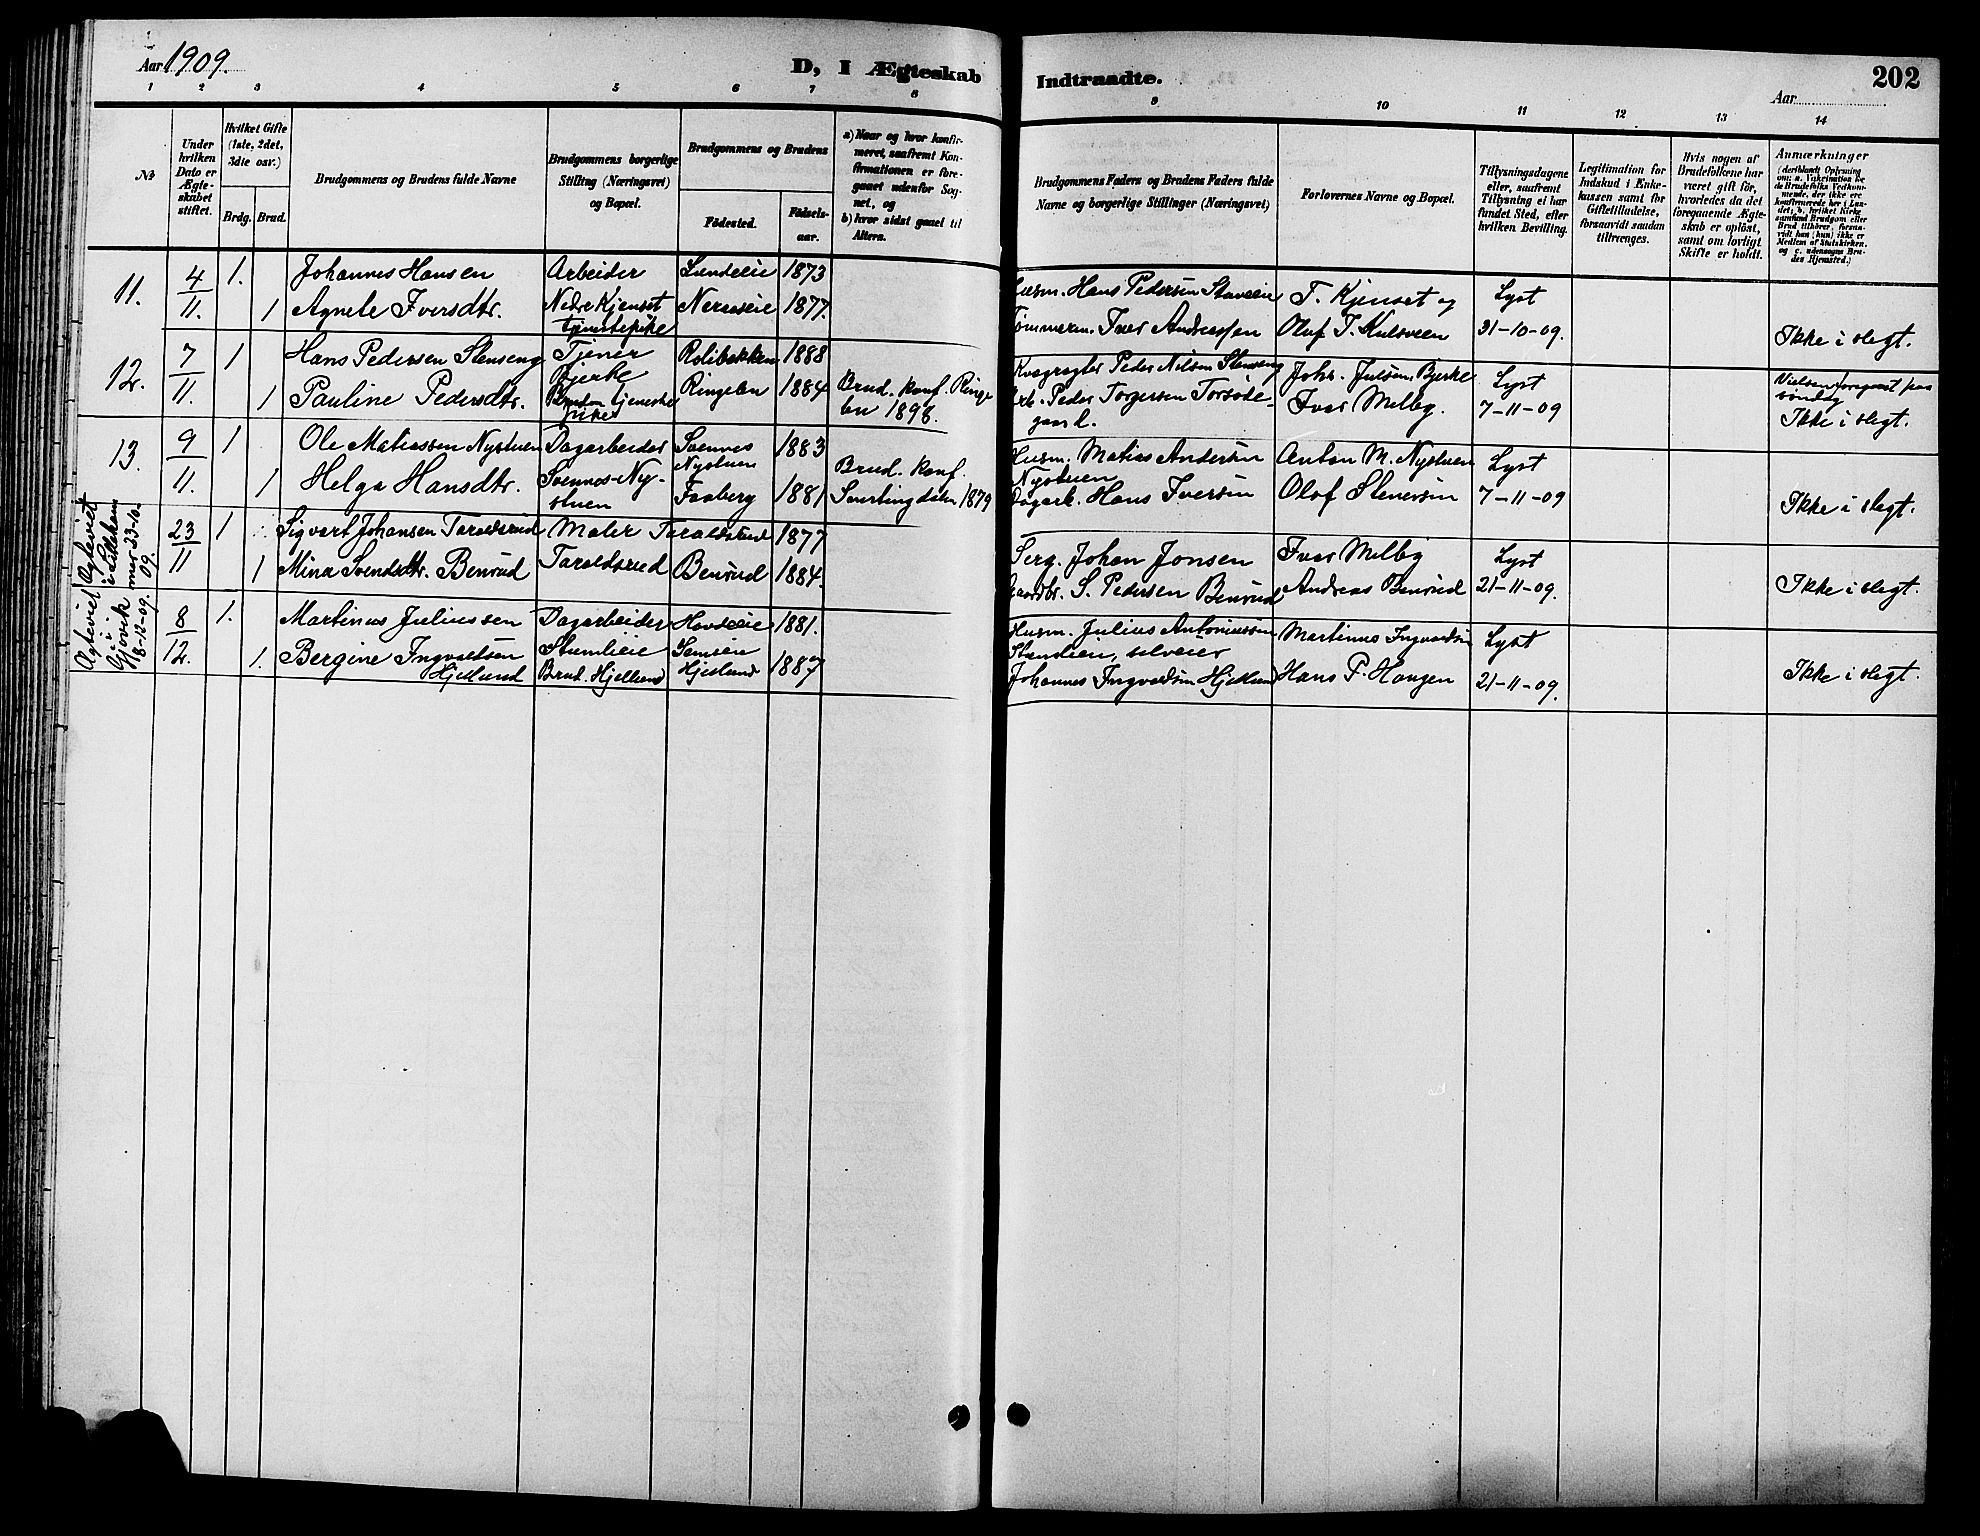 Aar 1909.
D, I Ægteskab Indtraadte.
202
Aar
1 2 3 4 5 6 7 8 9 10 11 12 13 14
№
Under hvilken Dato er Ægteskabet stiftet.
Hvilket Gifte (1ste, 2det, 3die osv.)
Brdg. Brud.
Brudgommens og Brudens fulde Navne
Brudgommens borgerlige Stilling (Næringsvei) og Bopæl.
Brudgommens og Brudens
Fødested. Fødselsaar.
a) Naar og hvor konfirmeret, saafremt Konfirmationen er foregaaet udenfor Sognet, og
b) hvor sidst gaaet til Alters.
Brudgommens Faders og Brudens Faders fulde Navne og borgerlige Stillinger (Næringsvei)
Forlovernes Navne og Bopæl.
Tillysningsdagene eller, saafremt Tillysning ei har fundet Sted, efter hvilken Bevilling.
Legitimation for Indskud i Enkekassen samt for Giftetilladelse, forsaavidt saadan tiltrænges.
Hvis nogen af Brudefolkene har været gift før, hvorledes da det foregaaende Ægteskab er opløst, samt om lovligt Skifte er holdt.
Anmærkninger
(deriblandt Oplysning om: a. Vakcination for de Brudefolks Vedkommende, der ikke ere konfirmerede her i Landet; b. hvilket Kirkesamfund Brudgom eller Brud tilhører, forsaavidt han (hun) ikke er Medlem af Statskirken, og c. udensogns Brudes Hjemsted.)
11. 4/11. 1. Johannes Hansen Arbeider 1873
1 Agnete Iversdtr. Nedre Kjenset tjenestepike 1877.
Husm. Hans Pedersen Staveeie T. Kjenset og Lyst
Tømmerm. Iver Andreassen Olaf T. Kulsveen 31-10-09. Ikke i slegt.
12. 7/11. 1 Hans Pedersen Stenseng Tjener Bjerke Rolibakken 1888
1 Pauline Pedersdtr. Bruden tjenestepike Ringebu 1884 Brud. konf. Ringebu 1898.
Kvægrøgter Peder Nilsen Stenseng Johs. Julsen, Bjerke Lyst
Arb. Peder Torgersen Torsødegaard. Ivar Melby. 7-11-09
Vielsen foregaat paa søndag
Ikke i slegt.
13. 9/11. 1 Ole Matiassen Nystuen Dagarbeider Svennes Nystuen 1883
1 Helga Hansdtr. Svennes-Nystuen Faaberg 1881 Brud. konf.
Husm. Matias Andersen Nystuen Anton M. Nystuen Lyst
Dagarb. Hans Iversen Olof Stenersen 7-11-09 Ikke i slegt.
Agteviet i Lillehammer 23-10-09.
23/11 1 Sigvert Johansen Taraldsrud Maler Taraldsrud 1877
1 Mina Svendsdtr. Benrud Taraldsrud Benrud 1884.
Serg. Johan Jonsen Ivar Melby Lyst
Gaardbr. S. Pedersen Benrud Andreas Benrud 21-11-09. Ikke i slegt.
Agteviet i Gjøvik 18-12-09.
8/12. 1. Martinus Juliussen Dagarbeider 1881.
1. Bergine Ingvaldsen Hjelund Brud. Hjelund Hjelund 1887
Husm. Julius Antoniussen Martinus Ingvaldsen Lyst
Johannes Ingvaldsen Hjelund Hans P. Haugen 21-11-09. Ikke i slegt.